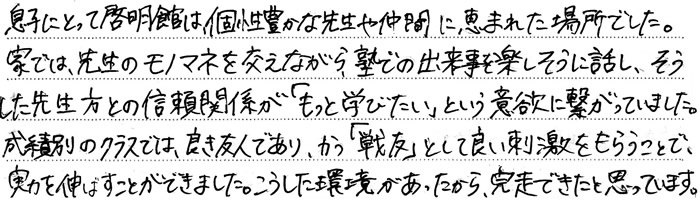 息子にとって啓明館は、個性豊かな先生や仲間に恵まれた場所でした。
家では、先生のモノマネを交えながら塾での出来事を楽しそうに話し、そう
した先生方との信頼関係が「もっと学びたい」という意欲に繋がっていました。
成績別のクラスでは、良き友人であり、かつ「戦友」として良い刺激をもらうことで、
実力を伸ばすことができました。こうした環境があったから、完走できたと思っています。